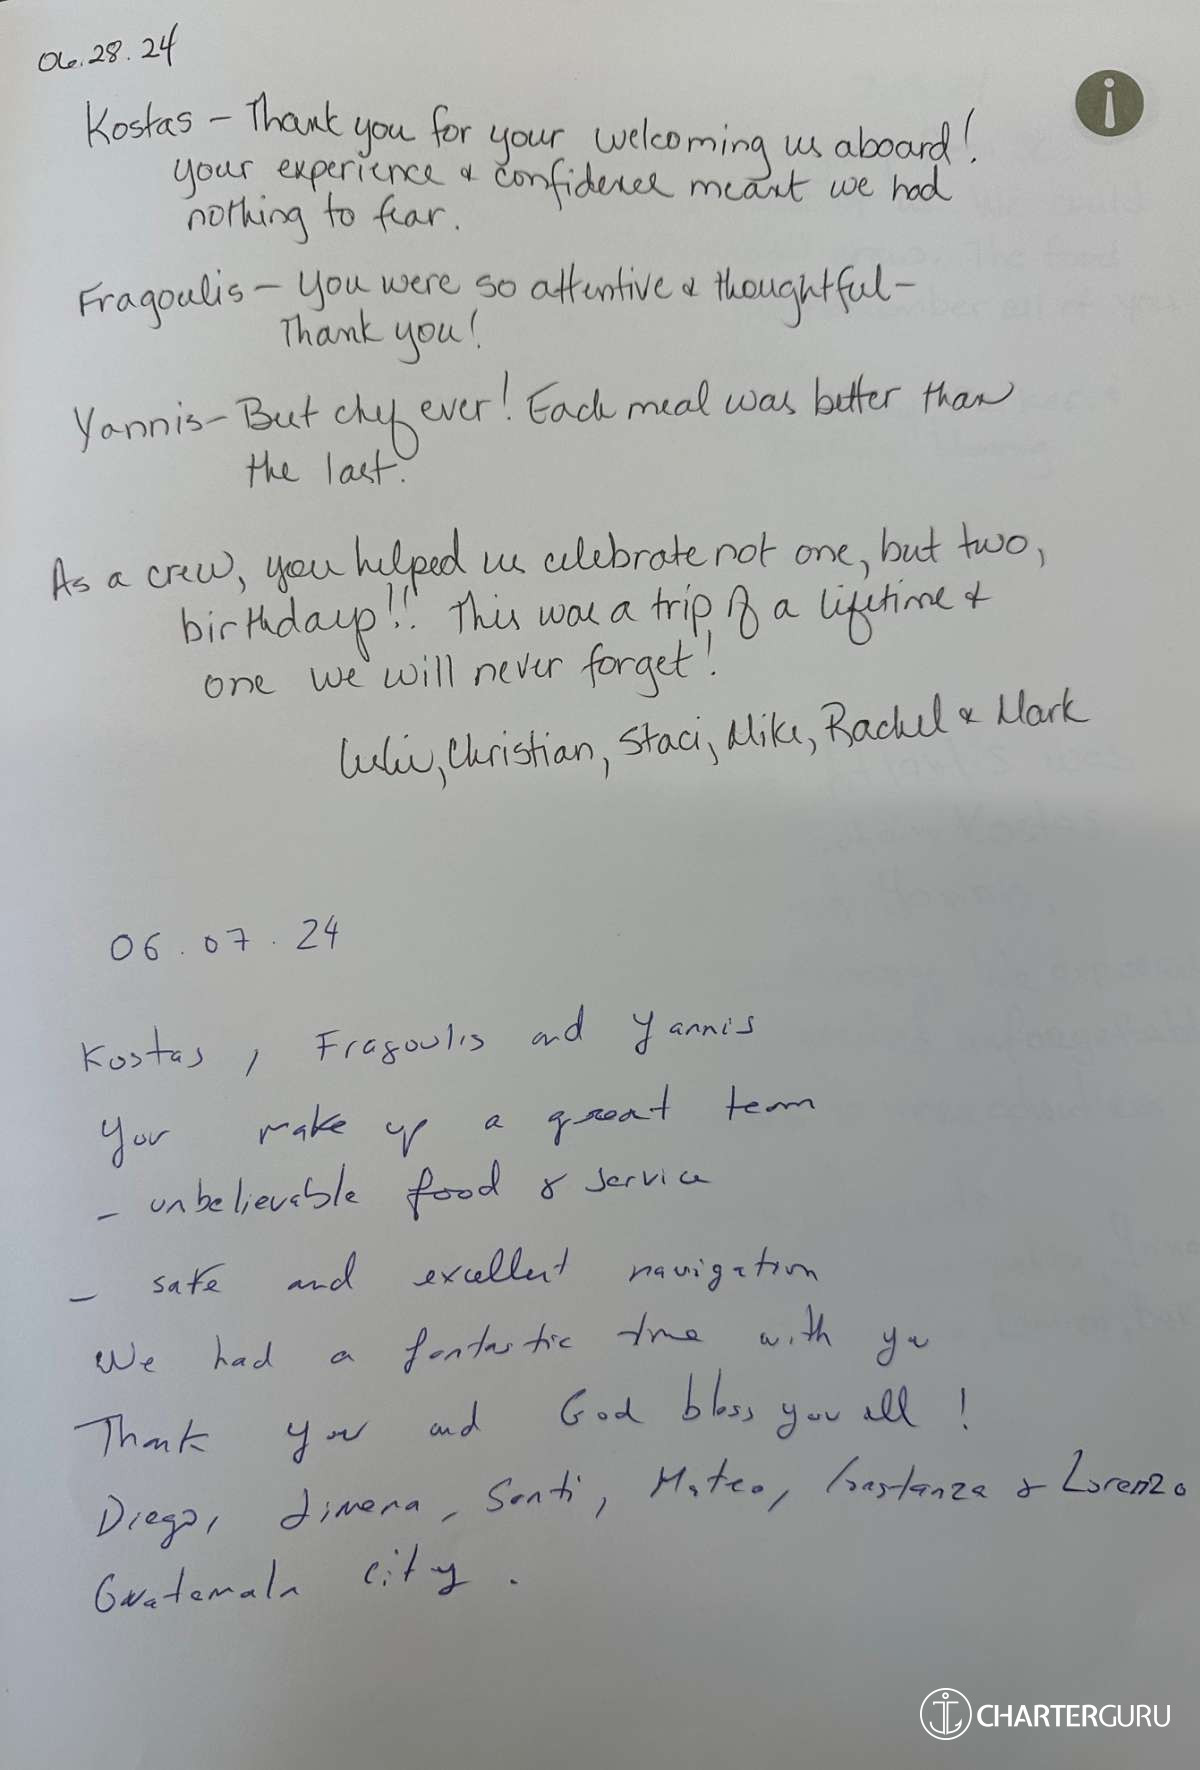 06.28.24
Kostas - Thank you for your welcoming us aboard!
your experience & confidence meant we had
nothing to fear.
Fragoulis - You were so attentive & thoughtful -
Thank you!
Yannis - Best chef ever! Each meal was better than
the last.
As a crew, you helped us celebrate not one, but two,
birthdays!! This was a trip of a lifetime &
one we will never forget!
Christian, Staci, Mike, Rachel & Mark
06.07.24
Kostas, Fragoulis and Yannis
You make up a great team
- unbelievable food & service
- safe and excellent navigation
We had a fantastic time with you
Thank you and God bless you all!
Diego, Jimena, Santi, Mateo, Constanza & Lorenzo
Guatemala city.
CHARTERGURU